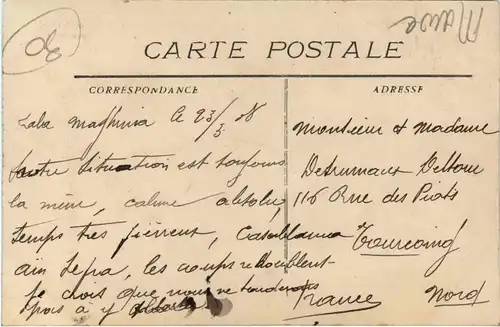 30
CARTE POSTALE
CORRESPONDANCE
ADRESSE
Lala Maghnia le 23/5 08
situation est toujours
la même, calme absolu,
temps très Casablanca
les coups redoublent
je dois que nous ne tarderons
pas à y
Monsieur & Madame
Destrumaux Delton
116 Rue des Piats
Tourcoing
France Nord